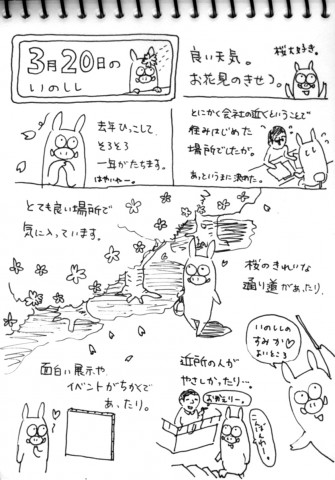 3月20日の
いのしし
桜大好き。
良い天気。
お花見のきせつ。
去年ひっこして、
そろそろ
一年がたちます。
はやいやー。
とにかく会社の近くということで
住みはじめた
場所でしたが。
あっというまに決めた。
とても良い場所で
気に入っています。
桜のきれいな
通り道があったり、
いのししの
すみか♡
よいところ
面白い展示や、
イベントがちかくで
あったり。
近所の人が
やさしかったり…
おかえりー。
こんばんわー。